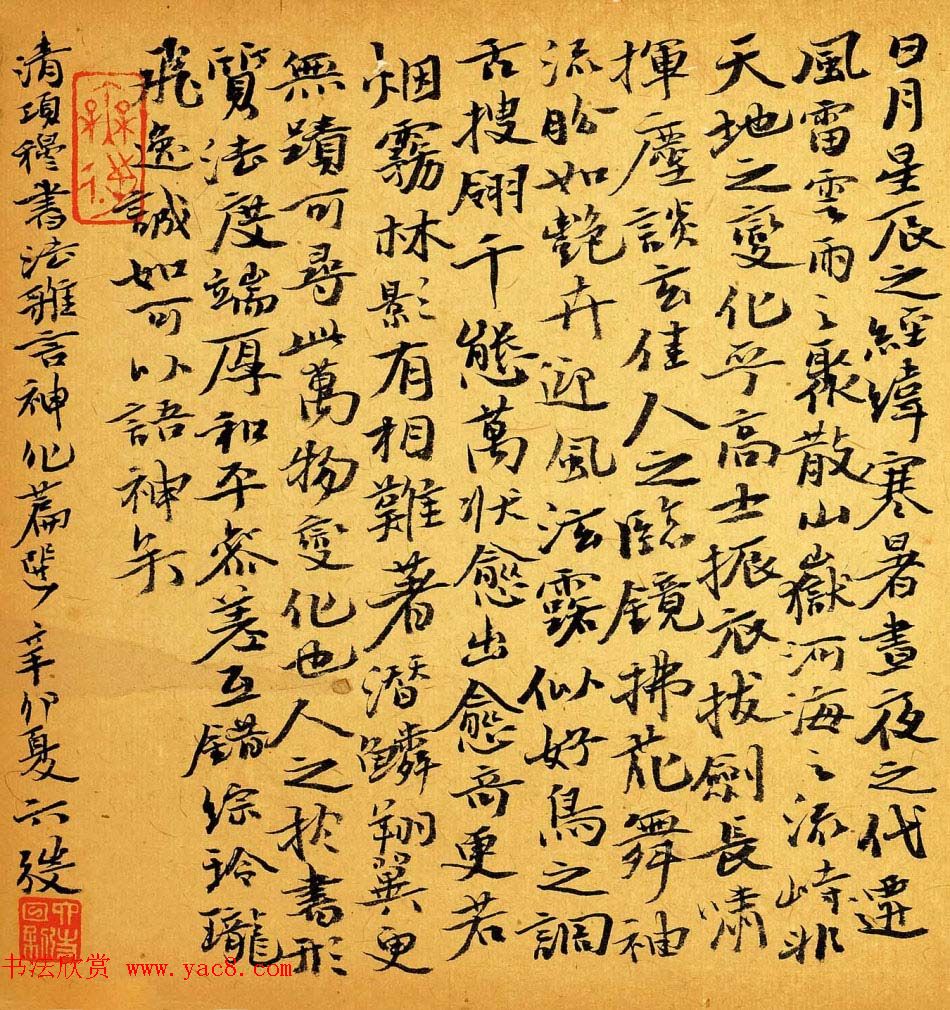 日月星辰之經緯寒暑晝夜之代遷
風雷雲雨之聚散山嶽河海之流峙非
天地之變化乎高士振衣拔劍長嘯
揮塵談玄佳人之臨鏡拂花舞袖
流盼如艷卉迎風泫露似好鳥之調
舌搜翎千態萬狀愈出愈奇更若
烟霧林影有相難著潛鱗翔翼更
無蹟可尋此萬物變化也人之於書形
質法度端厚和平參差互錯綜玲瓏
飛逸誠如可以語神矣
清項穆書法雅言神化篇選 辛卯夏 六
书法欣赏 www.yac8.com